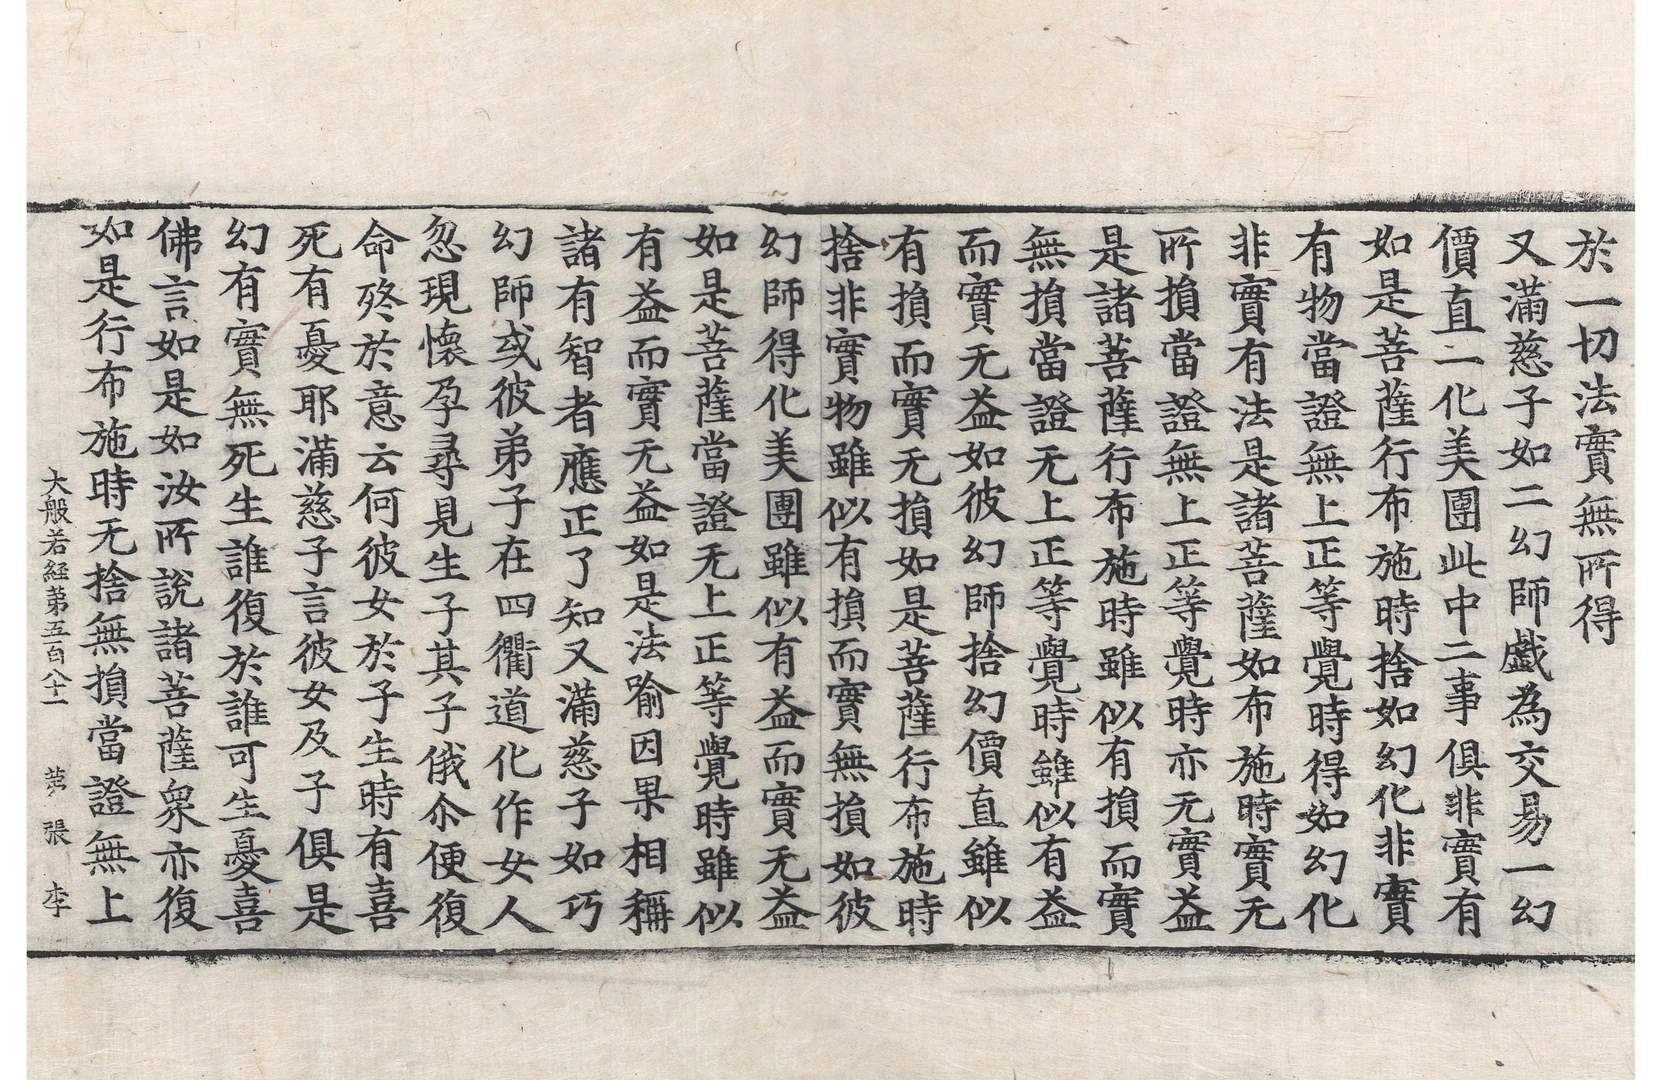 於一切法實無所得
又滿慈子如二幻師戲為交易一幻
價直一化美團此中二事俱非實有
如是菩薩行布施時捨如幻化非實
有物當證無上正等覺時得如幻化
非實有法是諸菩薩如布施時實无
所損當證無上正等覺時亦无實益
是諸菩薩行布施時雖似有損而實
無損當證无上正等覺時雖似有益
而實无益如彼幻師捨幻價直雖似
有損而實无損如是菩薩行布施時
捨非實物雖似有損而實無損如彼
幻師得化美團雖似有益而實无益
如是菩薩當證无上正等覺時雖似
有益而實无益如是法喻因果相稱
諸有智者應正了知又滿慈子如巧
幻師或彼弟子在四衢道化作女人
忽現懷孕尋見生子其子俄尒便復
命終於意云何彼女於子生時有喜
死有憂耶滿慈子言彼女及子俱是
幻有實無死生誰復於誰可生憂喜
佛言如是如汝所說諸菩薩衆亦復
如是行布施時无捨無損當證無上
大般若経第五百八十一 張 李